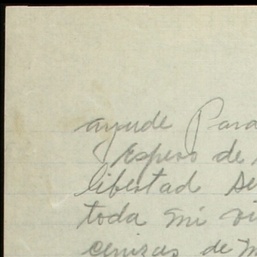 ayude Para
Espero de
libertad se
toda mi vi
cenizas de m